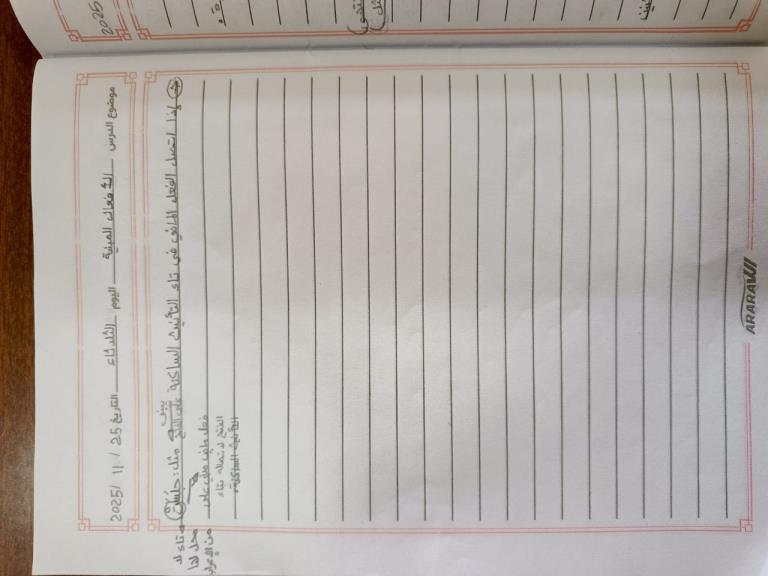 2025
موضوع الدرس الأفعال المبنية اليوم الثلاثاء التاريخ 25 / 11 / 2025
إذا اتصل الفعل الماضي في تاء التأنيث الساكنة يبنى على الفتح مثل: جلست
فعل ماضي مبني على
الفتح لاتصاله بتاء
التأنيث الساكنة
تاء لا
محل لها
من الإعراب
ARARAWI